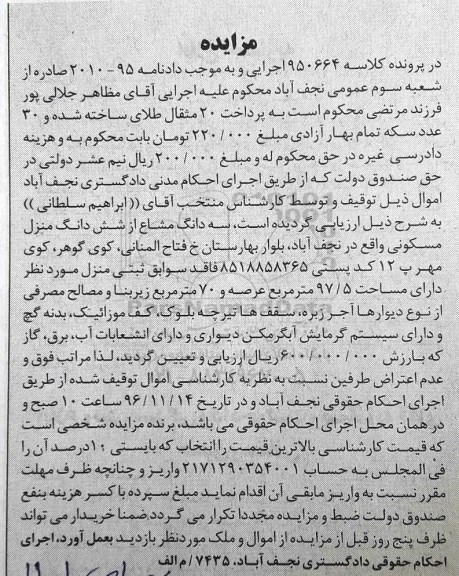 مزایده
در پرونده کلاسه ۹۵۰۶۶۴ اجرایی و به موجب دادنامه ۹۵ - ۲۰۱۰ صادره از
شعبه سوم عمومی نجف آباد محکوم علیه اجرایی آقای مظاهر جلالی پور
فرزند مرتضی محکوم است به پرداخت ۲۰ مثقال طلای ساخته شده و ۳۰
عدد سکه تمام بهار آزادی مبلغ ۲۲۰/۰۰۰ تومان بابت محکوم به و هزینه
دادرسی غیره در حق محکوم له و مبلغ ۲۰۰/۰۰۰ ریال نیم عشر دولتی در
حق صندوق دولت که از طریق اجرای احکام مدنی دادگستری نجف آباد
اموال ذیل توقیف و توسط کارشناس منتخب آقای ((ابراهیم سلطانی))
به شرح ذیل ارزیابی گردیده است، سه دانگ مشاع از شش دانگ منزل
مسکونی واقع در نجف آباد، بلوار بهارستان خ فتاح المنانی، کوی گوهر، کوی
مهر پ ۱۲ کد پستی ۸۵۱۸۸۵۸۳۶۵ فاقد سوابق ثبتی منزل مورد نظر
دارای مساحت ۹۷/۵ متر مربع عرصه و ۷۰ متر مربع زیربنا و مصالح مصرفی
از نوع دیوارها آجر زبره، سقف ها تیرچه بلوک، کف موزائیک، بدنه گچ
و دارای سیستم گرمایش آبگرمکن دیواری و دارای انشعابات آب، برق، گاز
که با ارزش ۶۰۰/۰۰۰/۰۰۰ ریال ارزیابی و تعیین گردید، لذا مراتب فوق و
عدم اعتراض طرفین نسبت به نظریه کارشناسی اموال توقیف شده از طریق
اجرای احکام حقوقی نجف آباد و در تاریخ ۹۶/۱۱/۱۴ ساعت ۱۰ صبح و
در همان محل اجرای احکام حقوقی می باشد، برنده مزایده شخصی است
که قیمت کارشناسی بالاترین قیمت را انتخاب که بایستی ۱۰ درصد آن را
فی المجلس به حساب ۲۱۷۱۲۹۰۳۵۴۰۰۱ واریز و چنانچه ظرف مهلت
مقرر نسبت به واریز مابقی آن اقدام نماید مبلغ سپرده با کسر هزینه بنفع
صندوق دولت ضبط و مزایده مجددا تکرار می گردد ضمنا خریدار می تواند
ظرف پنج روز قبل از مزایده از اموال و ملک مورد نظر بازدید بعمل آورد، اجرای
احکام حقوقی دادگستری نجف آباد، ۷۴۳۵/ م الف